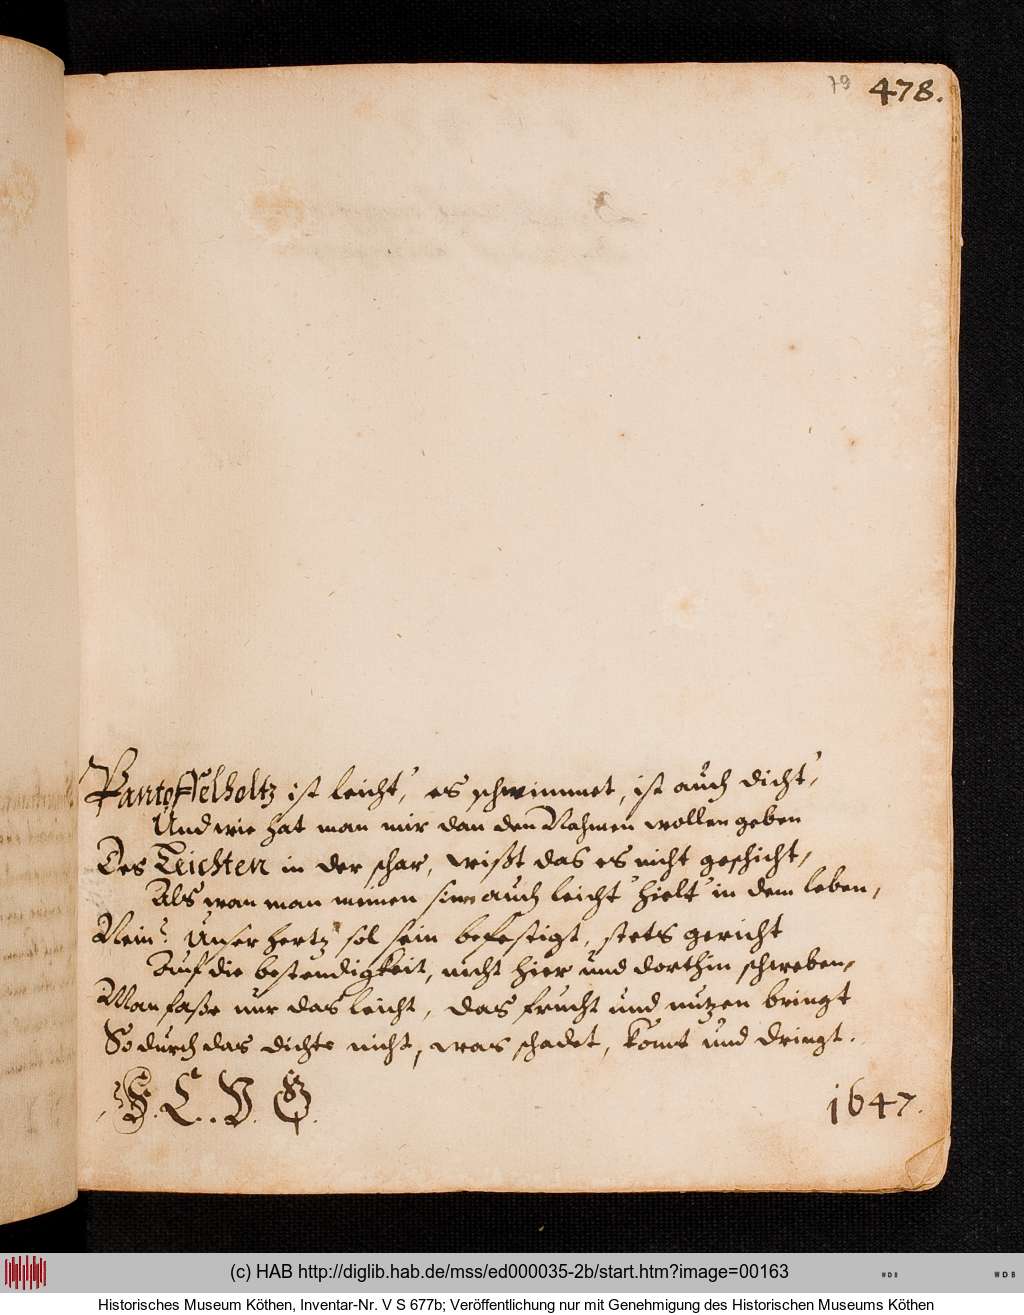 79 478.
Pantoffelholtz ist leicht, es schwimmet, ist auch dicht,
Und wie hat man mir dan den Nahmen wollen geben
Des Leichten in der schar, wißt das es nicht geschicht,
Als wan man meinen sinn auch leicht hielt in dem leben,
Nein: Unser hertz sol sein befestigt, stets gericht
Auf die bestendigkeit, nicht hier und dorthin schweben,
Man faße nur das leicht, das frucht und nutzen bringt
So durch das dichte nicht, was schadet, komt und dringt.
F. C. V. G. 1647.
(c) HAB http://diglib.hab.de/mss/ed000035-2b/start.htm?image=00163
WDB
WDB
Historisches Museum Köthen, Inventar-Nr. V S 677b; Veröffentlichung nur mit Genehmigung des Historischen Museums Köthen